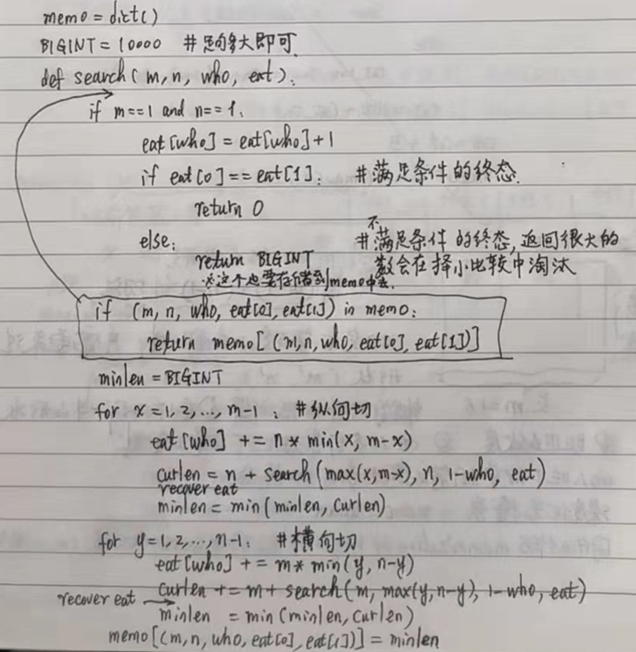 memo = dict()
BIGINT = 10000 #足够大即可
def search(m, n, who, eat):
if m==1 and n==1:
eat[who] = eat[who]+1
if eat[0]==eat[1]: #满足条件的终态.
return 0
else: #不满足条件的终态,返回很大的
return BIGINT 数会在择小比较中淘汰
※这个也要存储到memo中去.
if (m, n, who, eat[0], eat[1]) in memo:
return memo[(m,n,who,eat[0],eat[1])]
minlen = BIGINT
for x=1,2,...,m-1: #纵向切
eat[who] += n*min(x, m-x)
curlen = n + search(max(x,m-x), n, 1-who, eat)
recover eat
minlen = min(minlen, curlen)
for y=1,2,...,n-1: #横向切
eat[who] += m*min(y, n-y)
curlen += m + search(m, max(y,n-y), 1-who, eat)
recover eat
minlen = min(minlen, curlen)
memo[(m,n,who,eat[0],eat[1])] = minlen